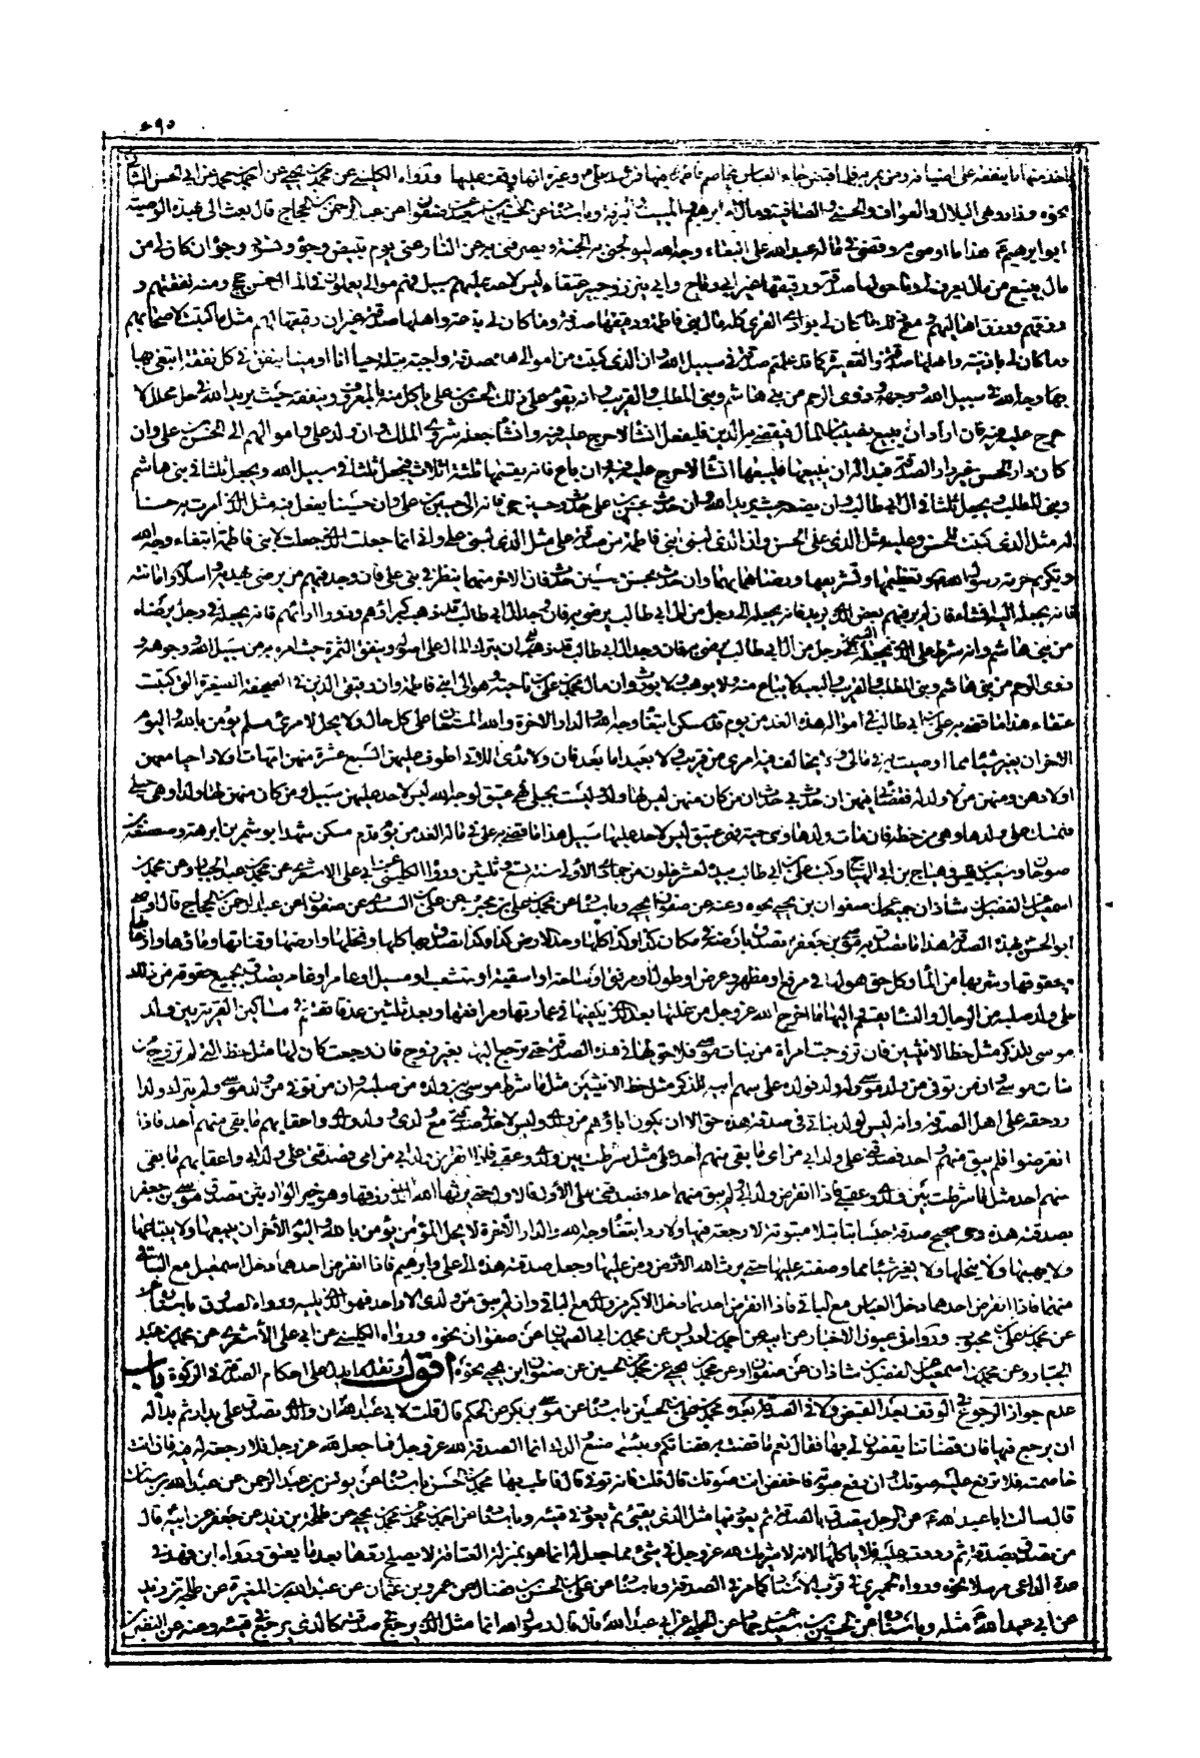 ياخذ منها ما ينفقه على اضيافه ومن يمر به فلما قبض جاء العباس يخاصم فاطمة فيها فشهد علي وغيره انها وقف عليها ورواه الكليني عن محمد بن يحيى عن احمد بن محمد عن ابي الحسن الثاني
نحوه وزاد وهي الدلال والعواف والحسنى والصافية ومال ام ابرهيم والمبيت وبرقة وباسناده عن الحسين بن سعيد عن صفوان عن عبد الرحمن بن الحجاج قال بعث الى بهذه الوصية
ابو ابرهيم هذا ما اوصى به وقضى في ماله عبد الله علي ابتغاء وجه الله ليولجني به الجنة ويصرفني به عن النار يوم تبيض وجوه وتسود وجوه ان ما كان لي من
مال بينبع من مال يعرف لي فيها وما حولها صدقة ورقيقها غير ابي رباح وابي نيزر وجبير عتقاء ليس لاحد عليهم سبيل فهم موالي يعملون في المال خمس حجج ومنه نفقتهم و
رزقهم ورزق اهاليهم ومع ذلك ما كان لي بوادي القرى كله مال بني فاطمة ورقيقها صدقة وما كان لي بذعة واهلها صدقة غير ان رقيقها لهم مثل ما كتبت لاصحابهم
وما كان لي باذينة واهلها صدقة والقصيرة كما قد علمتم صدقة في سبيل الله وان الذي كتبت من اموالي هذه صدقة واجبة بتلة حيا انا او ميتا ينفق في كل نفقة ابتغي بها
بها وجه الله في سبيل الله ووجهه وذوي الرحم من بني هاشم وبني المطلب والقريب وانه يقوم على ذلك الحسن بن علي ياكل منه بالمعروف وينفقه حيث يريد الله في حل محلل لا
حرج عليه فيه فان اراد ان يبيع نصيبا من المال فيقضي به الدين فليفعل ان شاء لا حرج عليه فيه وان شاء جعله شروى الملك وان ولد علي واموالهم الى الحسن بن علي وان
كان دار الحسن غير دار الصدقة فبدا له ان يبيعها فليبعها ان شاء لا حرج عليه فيه فان باع فانه يقسمها ثلثة اثلاث فيجعل ثلثا في سبيل الله ويجعل ثلثا في بني هاشم
وبني المطلب ويجعل ثلثا في آل ابي طالب وانه يضعه حيث يريد الله وان حدث بحسن بن علي حدث وحسين حي فانه الى حسين بن علي وان حسينا يفعل فيه مثل الذي امرت به حسنا
له مثل الذي كتبت للحسن وعليه مثل الذي على الحسن وان الذي لبني ابني فاطمة من صدقة علي مثل الذي لبني علي واني انما جعلت الذي جعلت لابني فاطمة ابتغاء وجه الله
وتكريم حرمة رسول الله وتعظيمها وتشريفها ورضاهما بهما وان حدث بحسن وحسين حدث فان الاخر منهما ينظر في بني علي فان وجد فيهم من يرضى بهديه واسلامه وامانته
فانه يجعله اليه ان شاء فان لم ير فيهم بعض الذي يريد فانه يجعله الى رجل من آل ابي طالب يرضى به فان وجد آل ابي طالب قد ذهب كبراؤهم وذووا ارائهم فانه يجعله في رجل يرضاه
من بني هاشم وانه شرط على الذي يجعله اليه ان يترك المال على اصوله وينفق الثمرة حيث امره به من سبيل الله ووجوهه و
ذوي الرحم من بني هاشم وبني المطلب والقريب والبعيد لا يباع منه ولا يوهب ولا يورث وان مال محمد بن علي ناحية وهو الى ابني فاطمة وان رقيقي الذين في الصحيفة الصغيرة التي كتبت
عتقاء هذا ما قضى به علي بن ابي طالب في امواله هذه الغد من يوم قدم مسكن ابتغاء وجه الله والدار الاخرة والله المستعان على كل حال ولا يحل لامرئ مسلم يؤمن بالله واليوم
الاخر ان يغير شيئا مما اوصيت به في مالي ولا يخالف فيه امري من قريب ولا بعيد اما بعد فان ولائدي اللاتي اطوف عليهن السبع عشرة منهن امهات اولاد احياء معهن
اولادهن ومنهن من لا ولد له فقضائي فيهن ان حدث بي حدث ان من كان منهن ليس لها ولد وليست بحبلى فهي عتيق لوجه الله ليس لاحد عليهن سبيل ومن كان منهن لها ولد او هي حبلى
فتمسك على ولدها وهي من حظه فان مات ولدها وهي حية فهي عتيق ليس لاحد عليها سبيل هذا ما قضى به علي في ماله الغد من يوم قدم مسكن شهد ابو شمر بن ابرهة وصعصعة بن
صوحان وسعيد بن قيس وهياج بن ابي الهياج وكتب علي بن ابي طالب بيده لعشر خلون من جمادى الاولى سنة سبع وثلثين ورواه الكليني عن ابي علي الاشعري عن محمد بن عبد الجبار وعن محمد بن
اسمعيل عن الفضل بن شاذان جميعا عن صفوان بن يحيى نحوه وعنه عن صفوان بن يحيى وباسناده عن محمد بن علي بن محبوب عن علي بن السندي عن صفوان عن عبد الرحمن بن الحجاج قال اوصى
ابو الحسن بهذه الصدقة هذا ما تصدق به موسى بن جعفر تصدق بارضه في مكان كذا وكذا كلها وحد الارض كذا وكذا تصدق بها كلها ونخلها وارضها وقناتها ومائها وارحائها
وحقوقها وشربها من الماء وكل حق هو لها في مرفع او مظهر او عرض او طول او مرفق او ساحة او اسقية او متشعب او مسيل او عامر او غامر تصدق بجميع حقوقه من ذلك
على ولد صلبه من الرجال والنساء يقسم واليها ما اخرج الله عز وجل من غلتها بعد الذي يكفيها في عمارتها ومرافقها وبعد ثلثين عذقا تقسم في مساكين القرية بين ولد
موسى للذكر مثل حظ الانثيين فان تزوجت امراة من بنات موسى فلا حق لها في هذه الصدقة حتى ترجع اليها بغير زوج فان رجعت كان لها مثل حظ التي لم تتزوج من
بنات موسى وان من توفي من ولد موسى وله ولد فولده على سهم ابيه للذكر مثل حظ الانثيين مثل ما شرط موسى بين ولده من صلبه وان من توفي من ولد موسى ولم يترك ولدا
رد حقه على اهل الصدقة وانه ليس لولد بناتي في صدقتي هذه حق الا ان يكون اباؤهم من ولدي وليس لاحد في صدقتي حق مع ولدي وولد ولدي واعقابهم ما بقي منهم احد فاذا
انقرضوا فلم يبق منهم احد فصدقتي على ولد ابي من امي ما بقي منهم احد على مثل ما شرطت بين ولدي وعقبي فاذا انقرض ولد ابي من امي فصدقتي على ولد ابي واعقابهم ما بقي
منهم احد مثل ما شرطت بين ولدي وعقبي فاذا انقرض ولد ابي ولم يبق منهم احد فصدقتي على الاولى فالاولى حتى يرثها الله الذي رزقها وهو خير الوارثين تصدق موسى بن جعفر
بصدقته هذه وهي صحيح صدقة حبسا بتا بتلا مبتوتة لا رجعة فيها ولا رد ابتغاء وجه الله والدار الآخرة لا يحل لمؤمن يؤمن بالله واليوم الاخر ان يبيعها ولا يبتاعها
ولا يهبها ولا ينحلها ولا يغير شيئا مما وصفته عليها حتى يرث الله الارض ومن عليها وجعل صدقته هذه الى علي وابرهيم فاذا انقرض احدهما دخل القسم مع الباقي
منهما فاذا انقرض احدهما دخل اسمعيل مع الباقي منهما فاذا انقرض احدهما دخل العباس مع الباقي فاذا انقرض احدهما دخل الاكبر من ولدي مع الباقي وان لم يبق من ولدي الا واحد فهو الذي يليه ورواه الصدوق باسناده
عن محمد بن علي بن محبوب ورواه في عيون الاخبار عن ابيه عن احمد بن ادريس عن محمد بن ابي الصهبان عن صفوان نحوه ورواه الكليني عن ابي علي الاشعري عن محمد بن عبد
الجبار وعن محمد بن اسمعيل عن الفضل بن شاذان عن صفوان وعن محمد بن يحيى عن محمد بن الحسين عن صفوان بن يحيى نحوه اقول وتقدم ما يدل على احكام الصدقة في الزكوة باب
عدم جواز الرجوع في الوقف بعد القبض ولا في الصدقة بعده محمد بن علي بن الحسين باسناده عن موسى بن بكر عن الحكم قال قلت لابي عبد الله ان والدي تصدق علي بدار ثم بدا له
ان يرجع فيها وان قضاتنا يقضون لي بها فقال نعم ما قضت به قضاتكم وبئس ما صنع والدك انما الصدقة لله عز وجل فما جعل لله عز وجل فلا رجعة له فيه فان انت
خاصمته فلا ترفع عليه صوتك وان رفع صوته فاخفض انت صوتك قال قلت فانه توفي قال فاطب بها محمد بن الحسن باسناده عن يونس بن عبد الرحمن عن عبد الله بن سنان
قال سالت ابا عبد الله عن الرجل يتصدق بالصدقة ثم يعود فيها مثل الذي يقيئ ثم يعود في قيئه وباسناده عن احمد بن محمد عن محمد بن يحيى عن طلحة بن زيد عن جعفر عن ابيه قال
من تصدق بصدقة ثم ردت عليه فلا ياكلها لانه لا شريك لله عز وجل في شيء مما جعل له انما هو بمنزلة العتاقة لا يصلح ردها بعد ما يعتق ورواه ابن فهد في
عدة الداعي مرسلا نحوه ورواه الحميري في قرب الاسناد كما مر في الصدقة وباسناده عن علي بن الحسن بن فضال عن عمرو بن عثمان عن عبد الله بن المغيرة عن طلحة بن زيد
عن ابي عبد الله مثله وباسناده عن الحسين بن سعيد عن حماد عن الحلبي عن ابي عبد الله قال قال رسول الله انما مثل الذي يرجع في صدقته كالذي يرجع في قيئه وعنه عن النضر بن